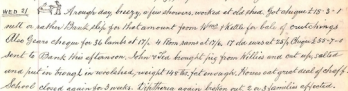 WED. 21 A rough day, breezy, a few showers, worked at old shed. Got cheque £15-3-1
with another Bank slip for that amount from Hom & Kettle for bale of crutchings
Also Gears cheque for 36 lambs at 17/- 4 Rom. rams at 17/- 17 do ewes at 25/- Cheque £55-7-0
sent to Bank this afternoon. John Tole brought pig from Killies and cut up, salted
and put in brough in woolshed, weight 145 lbs, fat enough. Horses eat great deal of chaff.
School closed again for 3 weeks. Diptheria again broken out 2 or 3 families affected.